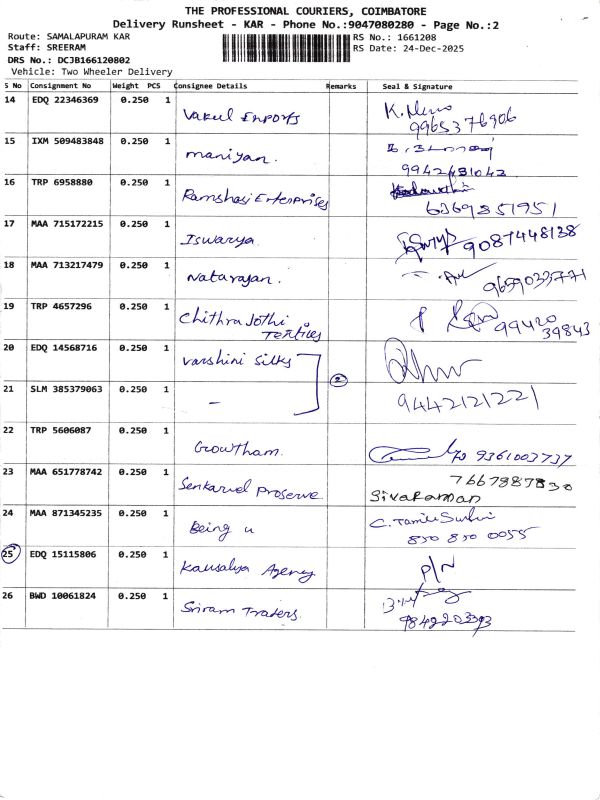 THE PROFESSIONAL COURIERS, COIMBATORE
Delivery Runsheet - KAR - Phone No.:9047080280 - Page No.:2
Route: SAMALAPURAM KAR
RS No.: 1661208
Staff: SREERAM
RS Date: 24-Dec-2025
DRS No.: DCJB166120802
Vehicle: Two Wheeler Delivery
S No Consignment No Weight PCS Consignee Details Remarks Seal & Signature
14 EDQ 22346369 0.250 1 Vakul Exports K.
9965376906
15 IXM 509483848 0.250 1 maniyan.
9942481042
16 TRP 6958880 0.250 1 Ramshasi Enterprises
6369851951
17 MAA 715172215 0.250 1 Iswarya 9087448138
18 MAA 713217479 0.250 1 Natarajan. 9659033771
19 TRP 4657296 0.250 1 Chithra Jothi
Textiles
99420
39843
20 EDQ 14568716 0.250 1 Varshini Silks
2
21 SLM 385379063 0.250 1 -
9442121221
22 TRP 5606087 0.250 1 Growtham. 9361003737
23 MAA 651778742 0.250 1 Senkarvel Proserve
7667987830
Sivaraman
24 MAA 871345235 0.250 1 Being u
850 850 0055
25 EDQ 15115806 0.250 1 Kausalya Agency P/N
26 BWD 10061824 0.250 1 Sriram Traders.
9842203393